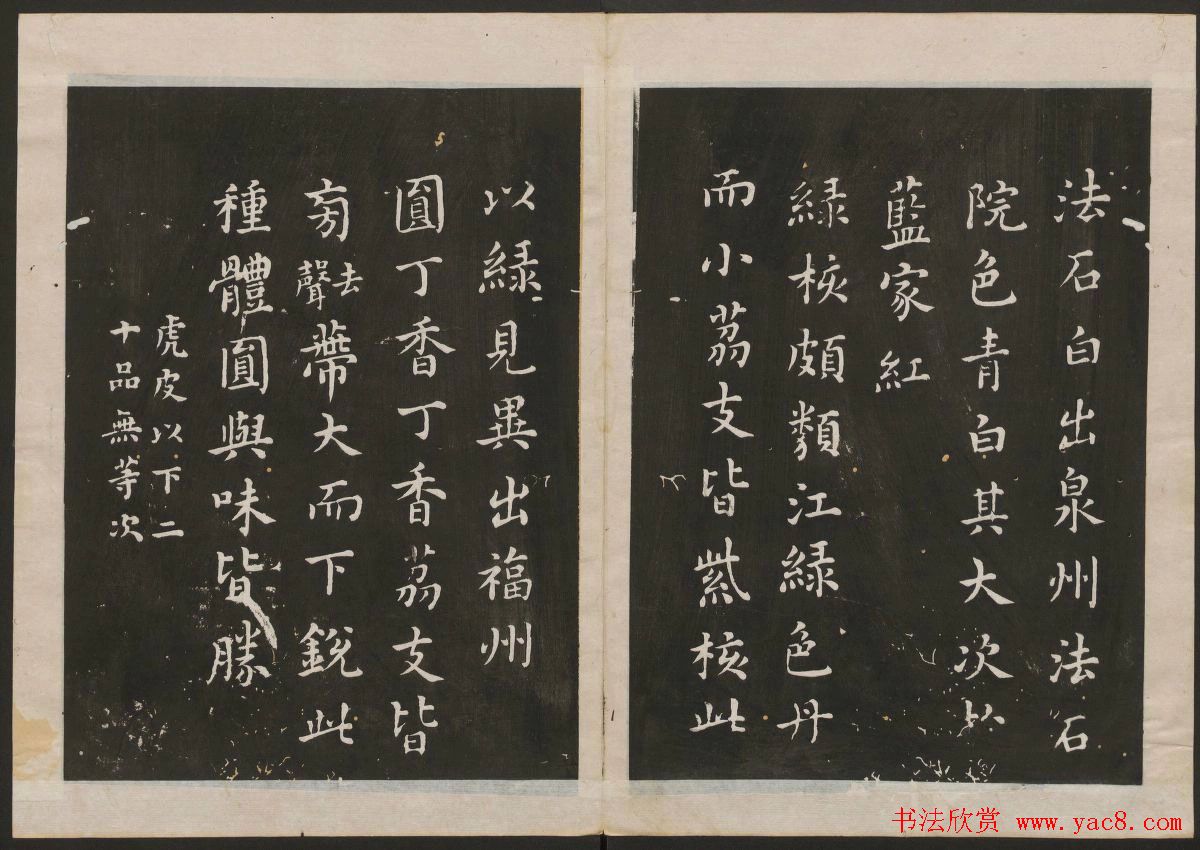 法石白出泉州法石
院色青白其大次於
藍家紅
緑核頗類江緑色丹
而小荔支皆紫核此
以緑見異出福州
圓丁香丁香荔支皆
旁去聲蔕大而下銳此
種體圓與味皆勝
虎皮以下二
十品無等次
书法欣赏 www.yac8.com